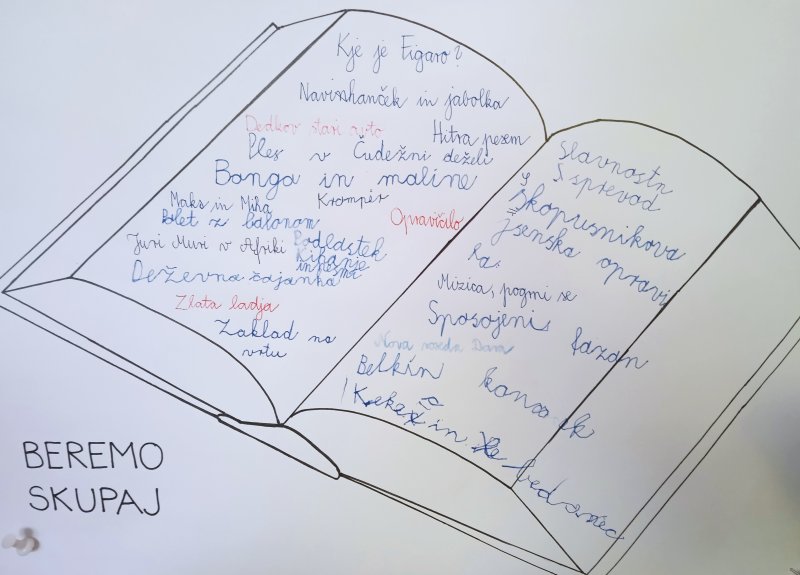 Kje je Figaro?
Navihanček in jabolka
Dedkov stari avto
Hitra pesem
Ples v Čudežni deželi
Bonga in maline
Maks in Miha
Krompir
Polet z balonom
Opravičilo
Juri Muri v Afriki
Podlastek
Kihanje
in kosmi
Deževna čajanka
Zlata ladja
Zaklad na
vrtu
Slavnostn
i sprevod
Skopusnikova
Jesenska opravi
la
Mizica, pogrni se
Sposojeni fazan
Nova soseda Dara
Belkin kanarček
Kekec in bedanec
BEREMO
SKUPAJ